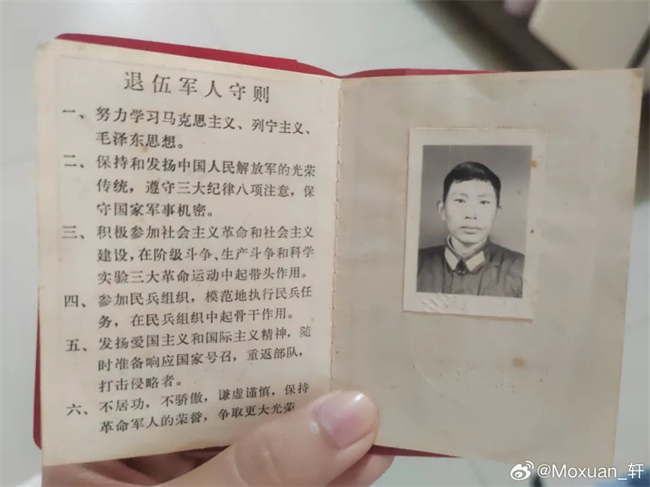 退伍军人守则
一、努力学习马克思主义、列宁主义、
毛泽东思想。
二、保持和发扬中国人民解放军的光荣
传统，遵守三大纪律八项注意，保
守国家军事机密。
三、积极参加社会主义革命和社会主义
建设，在阶级斗争、生产斗争和科学
实验三大革命运动中起带头作用。
四、参加民兵组织，模范地执行民兵任
务，在民兵组织中起骨干作用。
五、发扬爱国主义和国际主义精神，随
时准备响应国家号召，重返部队，
打击侵略者。
六、不居功，不骄傲，谦虚谨慎，保持
革命军人的荣誉，争取更大光荣
@Moxuan_轩